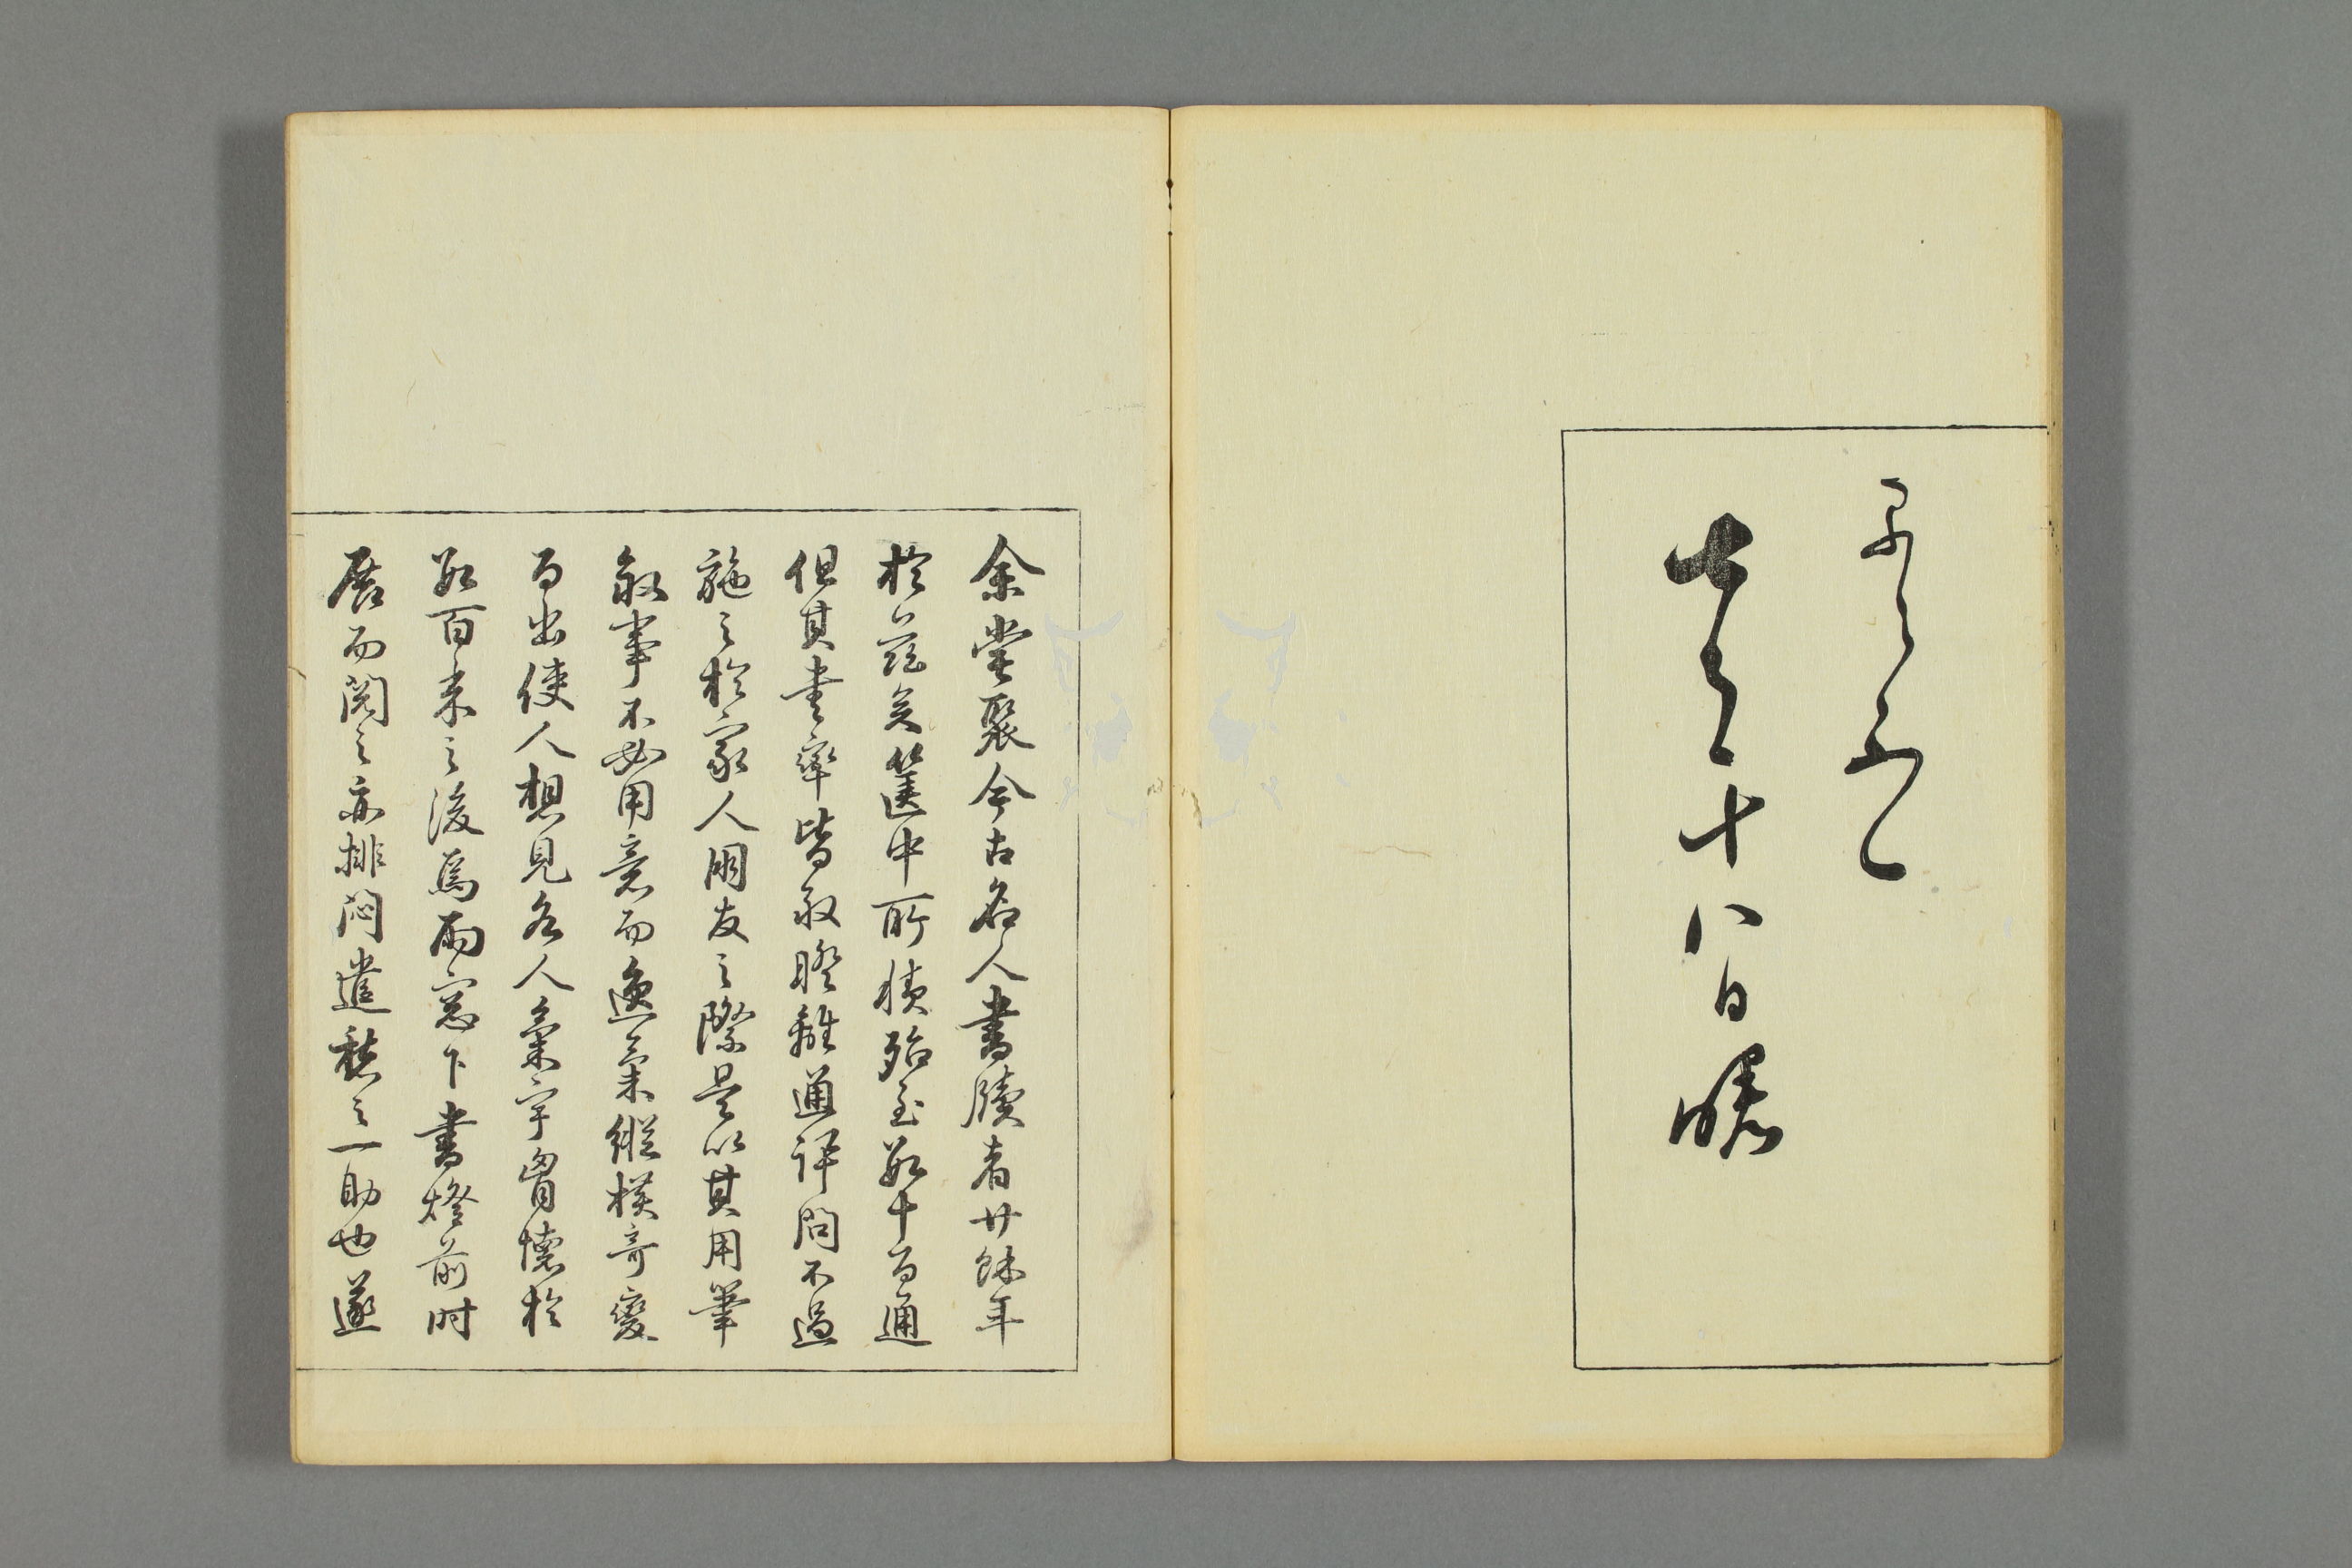 早々不一
十八日 曙
余嘗聚今古名人書牘者廿餘年
於茲矣篋中所積殆至数十百通
但其書率皆叙暌離通訊問不過
施之於家人朋友之際是以其用筆
叙事不必用意而逸氣縱横奇變
百出使人想見各人氣宇胷懐於
数百之後焉雨窓下書燈前時
展而閲之亦排悶遣愁之一助也遂